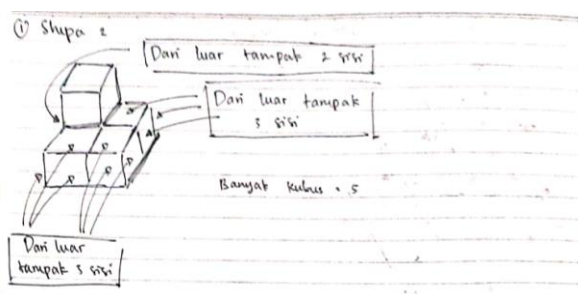 ① Stupa 2
Dari luar tampak 2 sisi
Dari luar tampak
3 sisi
Banyak kubus = 5
Dari luar
tampak 3 sisi